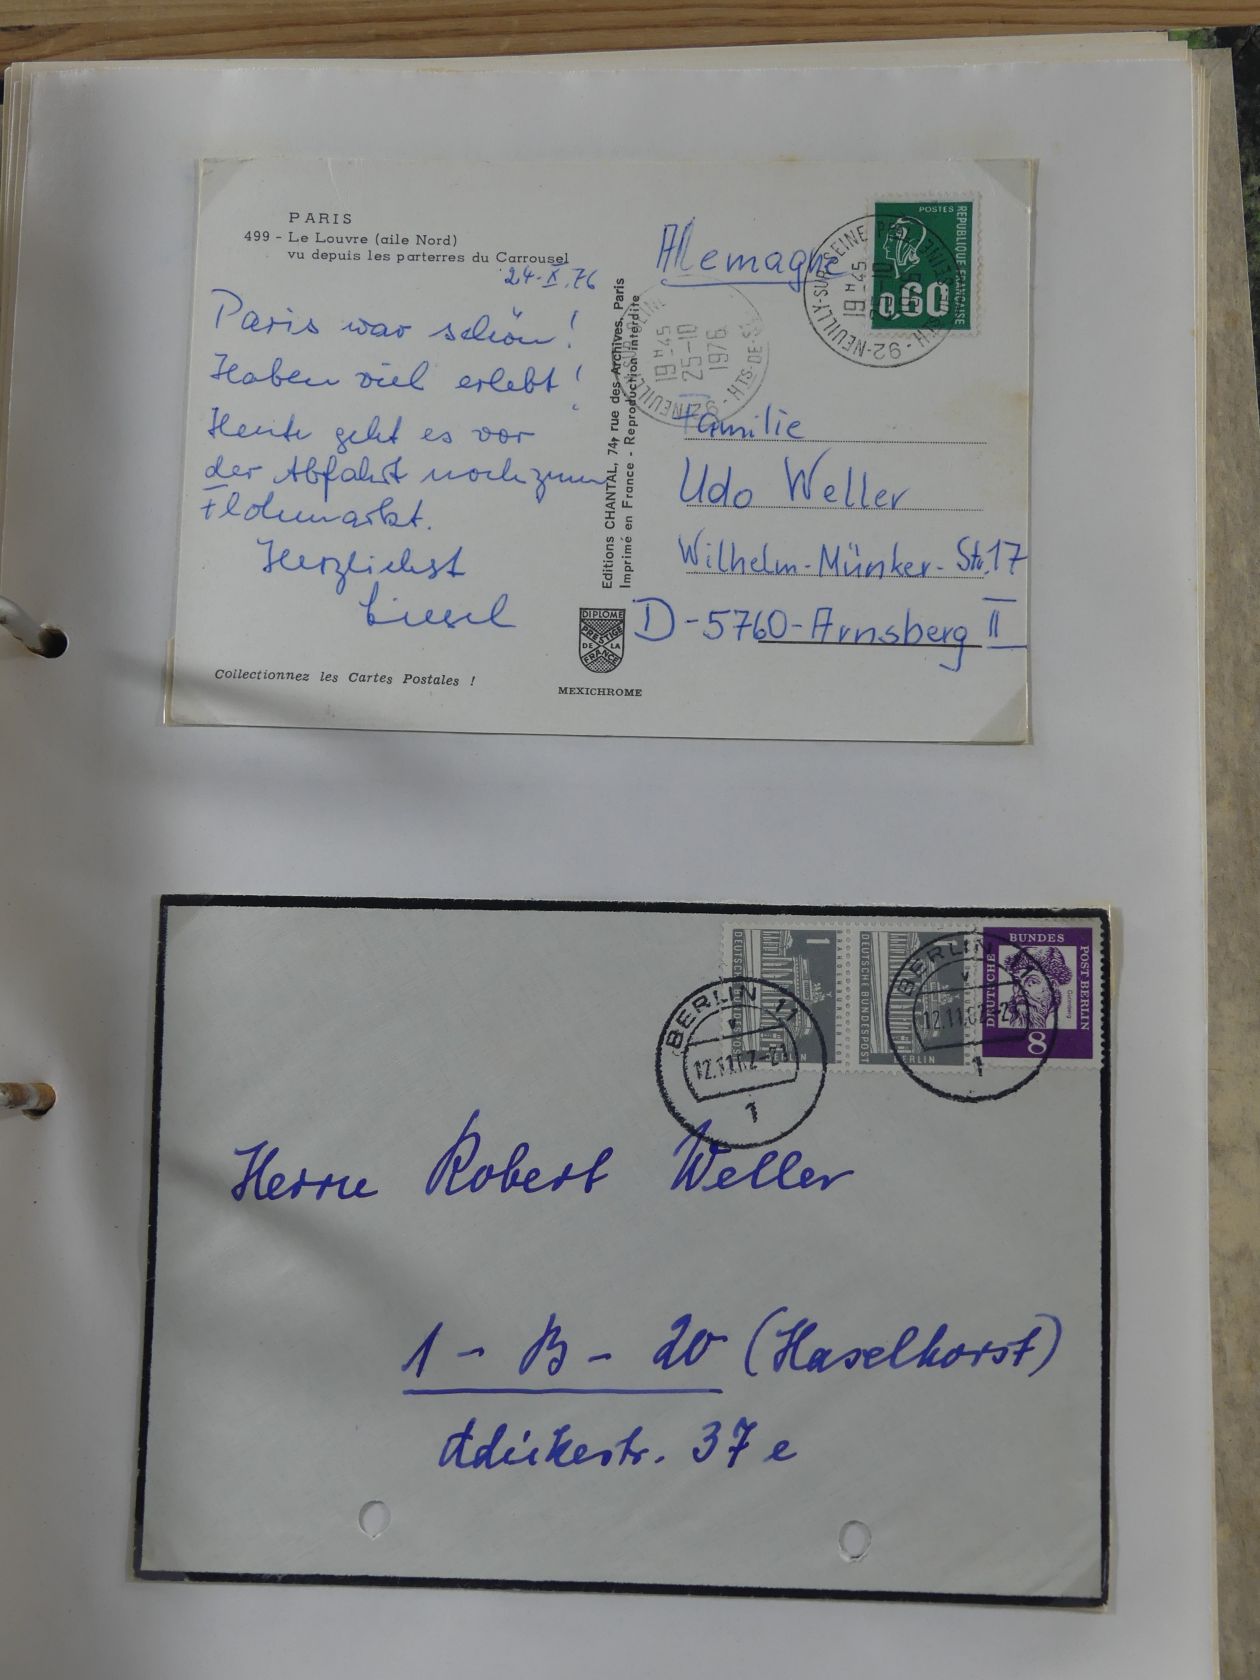 PARIS
499 - Le Louvre (aile Nord)
vu depuis les parterres du Carrousel
24.X.76
Paris war schön!
Haben viel erlebt!
Heute geht es vor
der Abfahrt noch zum
Flohmarkt.
Herzlichst
Liesel
Collectionnez les Cartes Postales !
Editions CHANTAL, 74, rue des Archives, Paris
Imprimé en France - Reproduction interdite
DIPLOME
PRESTIGE
DE LA
FRANCE
MEXICHROME
Allemagne
POSTES
REPUBLIQUE FRANÇAISE
0,60
92 - NEUILLY-SUR-SEINE
19H45
25-10
1976
92 NEUILLY
HTS-DE-SEINE
Familie
Udo Weller
Wilhelm-Münker-Str. 17
D-5760-Arnsberg II
DEUTSCHE BUNDESPOST
BRANDENBURGER TOR
1
BERLIN
DEUTSCHE BUNDESPOST
BERLIN
DEUTSCHE
BUNDES
POST BERLIN
Gutenberg
8
BERLIN 11
12.11.62-21
1
BERLIN 11
12.11.62-21
1
Herrn Robert Weller
1 - B - 20 (Haselhorst)
Adickestr. 37 e